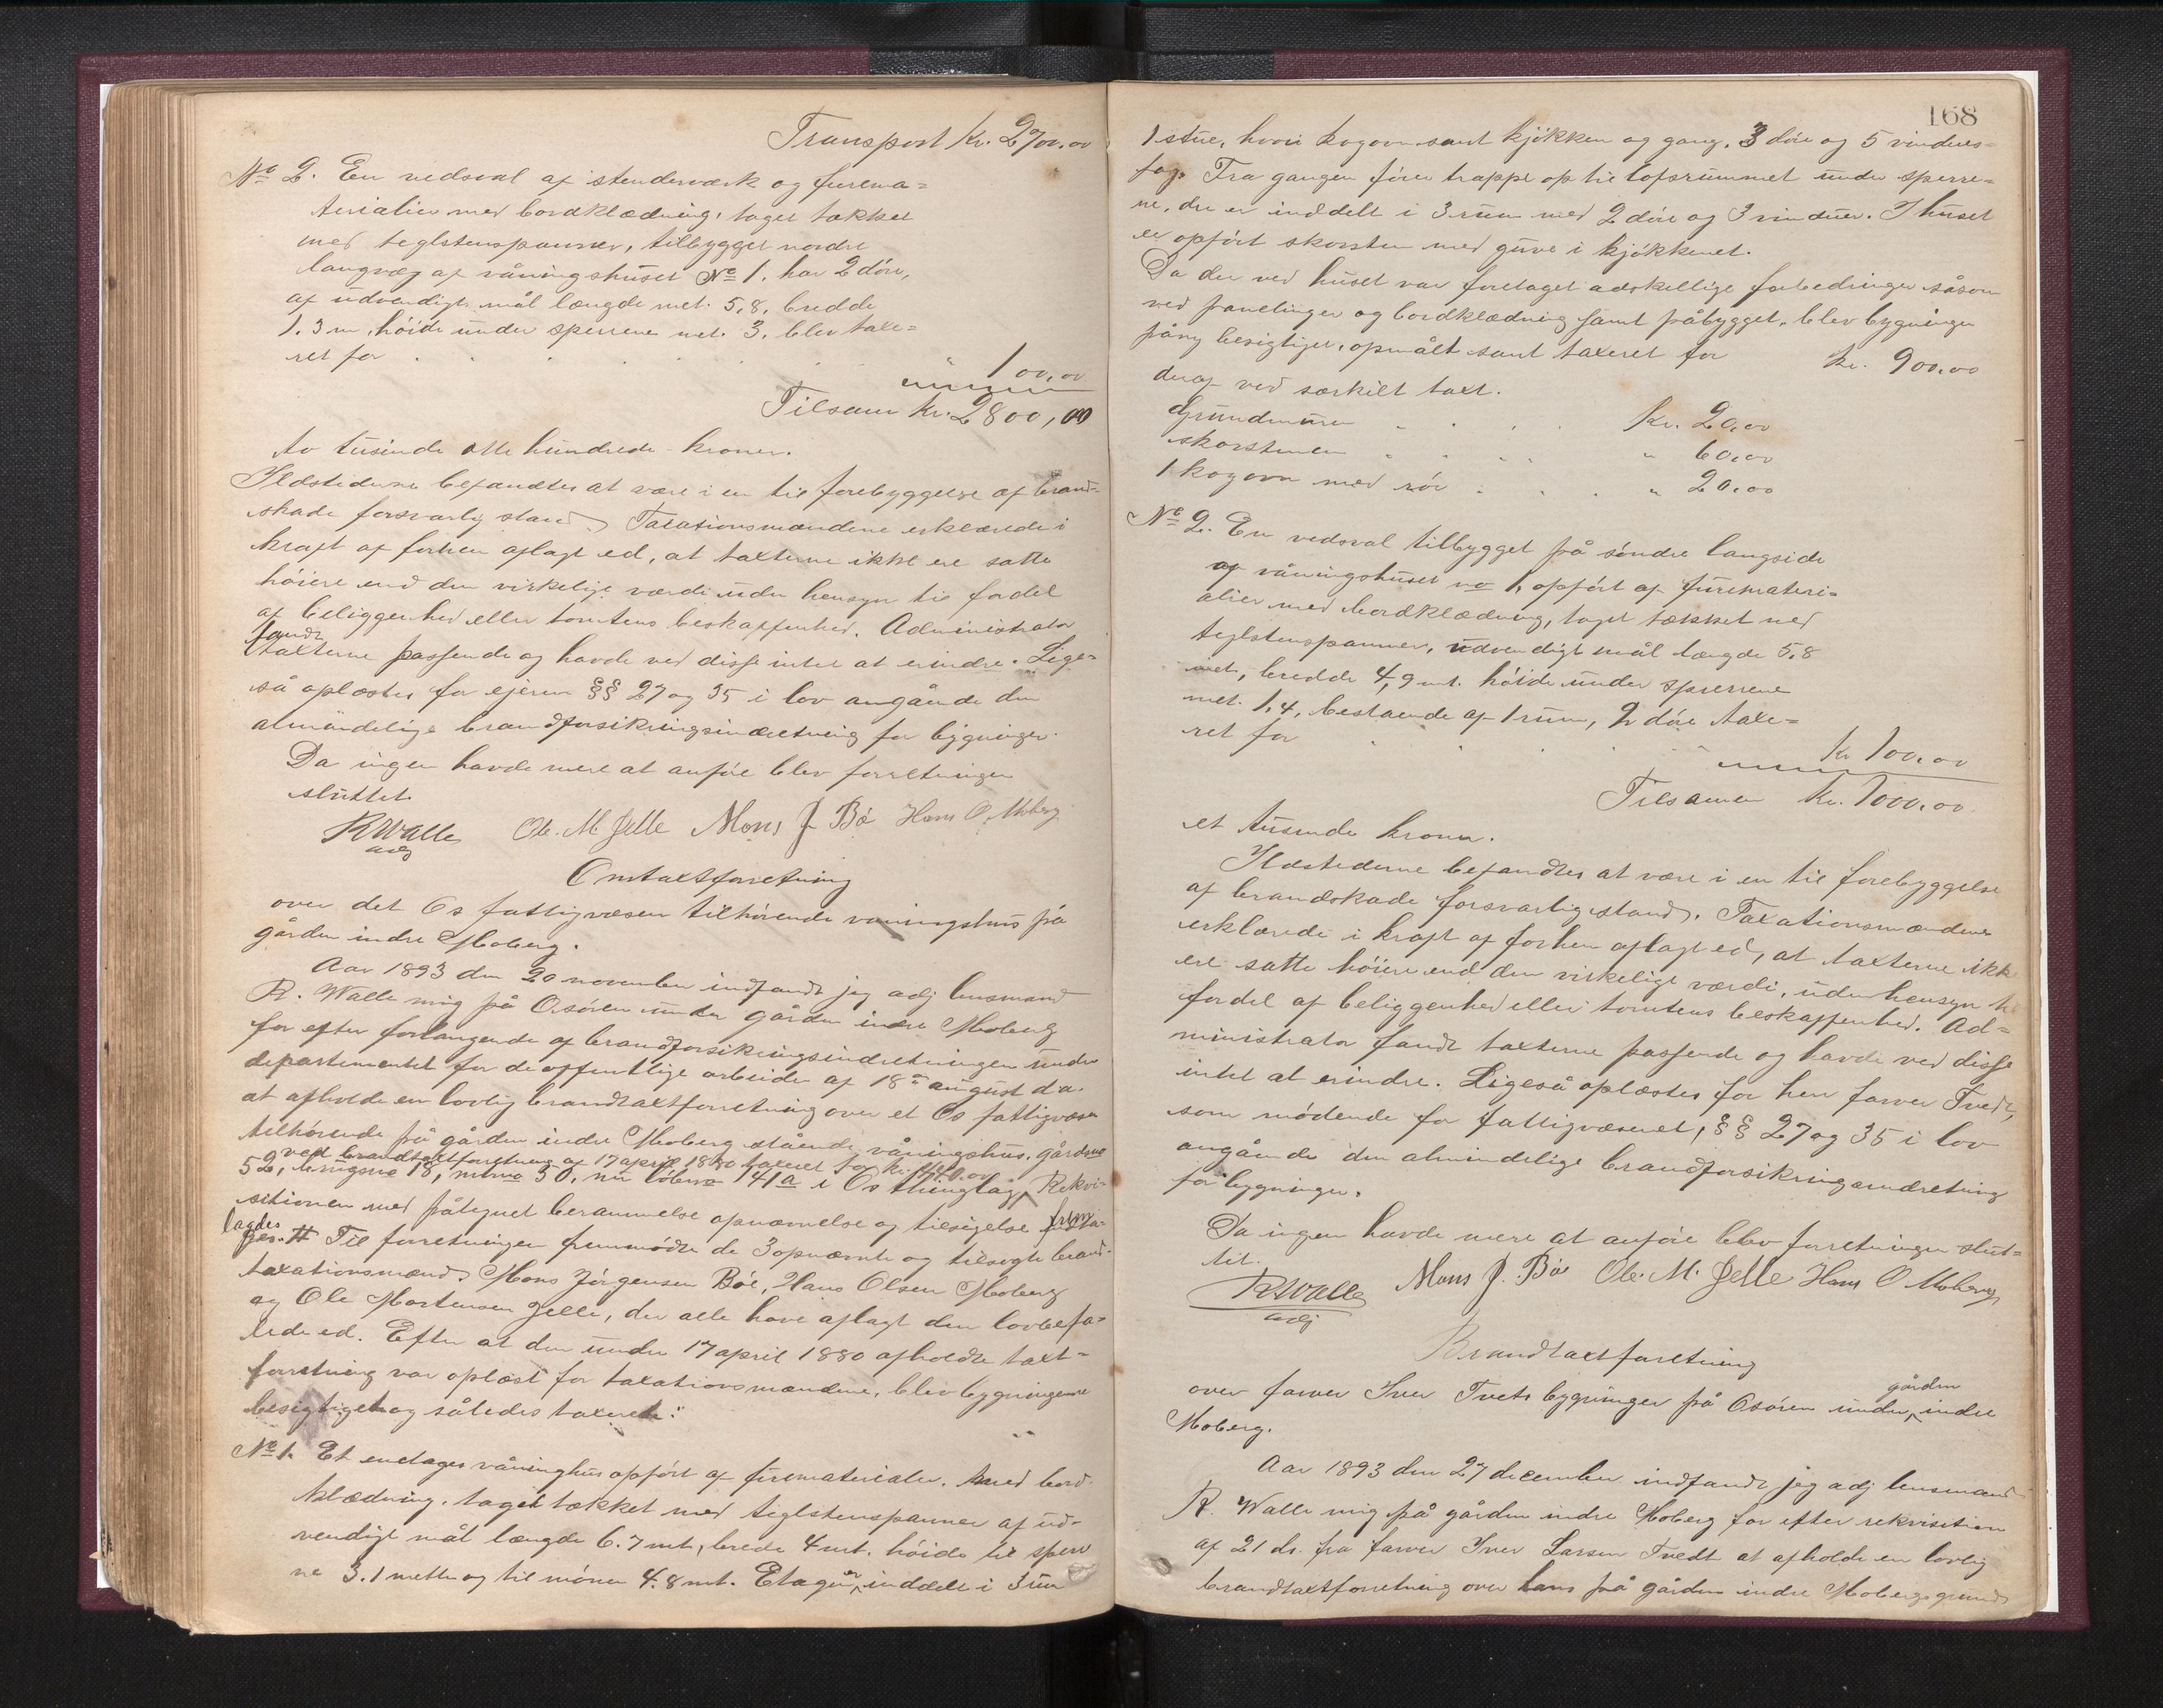 Transport Kr. 2700.00
No 2. En vedsval af stenderværk og furema=
terialier med bordklædning, taget tækket
med teglstenspanner, tilbygget nordre
langvæg af våningshuset No 1. har 2 döre,
af udvendigt mål længde met. 5,8, bredde
1.3 m, höide under sperrene met. 3. blev taxe=
ret for
100.00
Tilsam Kr. 2800,00
to tusinde otte hundrede kroner.
Ildstederne befandtes at være i en til forebyggelse af brand=
skade forsvarlig stand. Taxationsmændene erklærede i
kraft af forhen aflagt ed, at taxterne ikke ere satte
höiere end den virkelige værdi uden hensyn til fordel
af beliggenhed eller tomtens beskaffenhed. Administrator
fandt
taxterne passende og havde ved disse intet at erindre. Lige=
så oplæstes for ejeren §§ 27 og 35 i lov angående den
almindelige brandforsikringsindretning for bygninger.
Da ingen havde mere at anföre blev forretningen
sluttet.
RWalle Ole. M. Gjelle Mons J. Bö Hans O. Moberg
adj
Omtaxtforretning
over det Os fattigvæsen tilhörende våningshus på
gården indre Moberg.
Aar 1893 den 20 november indfandt jeg adj lensmand
R. Walle mig på Osören under gården indre Moberg
for efter forlangende af brandforsikringsindretningen under
departementet for de offentlige arbeider af 18de august d.a.
at afholde en lovlig brandtaxtforretning over et Os fattigvæsen
tilhörende på gården indre Moberg stående våningshus, gårdsno
ved brandtaxtforretning af 17 april 1880 taxeret for kr.
52, brugsno 18, mtrno 30, nu löbeno 141a i Os thinglag, Rekvi=
sitionen med påtegnet berammelse opnævnelse og tilsigelse frem
lagdes. # Til forretningen fremmödte de 3 opnævnte og tilsagte brand=
taxationsmænd. Mons Jörgensen Böe, Hans Olsen Moberg
og Ole Mortensen Gjelle, der alle have aflagt den lovbefa=
lede ed. Efter at den under 17 april 1880 afholdte taxt=
forretning var oplæst for taxationsmændene, blev bygningerne
besigtiget og således taxeret:
No 1. Et enetages våninghus opfört af furematerialer, med bord
klædning, taget tækket med teglstenspanner af ud=
vendigt mål længde 6.7 mt, brede 4 mt. höide til sperre
ne 3.1 metter og til mönen 4.8 mt. Etagen er inddelt i 3 rum
168
1 stue, hvori kogovn samt kjökken og gang. 3 döre og 5 vindues=
fag. Fra gangen förer trappe op til loftsrummet under sperre=
ne, der er inddelt i 3 rum med 2 döre og 3 vinduer. I huset
er opfört skorsten med gruve i kjökkenet.
Da der ved huset var foretaget adskellige forbedringer såsom
ved panelinger og bordklædning samt påbygget, blev bygningen
påny besigtiget, opmålt samt taxeret for Kr. 900.00
deraf ved særkilt taxt.
Grundmuren Kr. 20.00
skorstenen " 60.00
1 kogovn med rör " 20.00
No 2. En vedsval tilbygget på söndre langside
af våningshuset no 1, opfört af furemateri=
alier med bordklædning, taget tækket med
teglstenspanner, udvendigt mål længde 5,8
met, bredde 4,9 mt. höide under sperrene
met. 1,4, bestaende af 1 rum, 2 döre taxe=
ret for
Kr 100.00
Tilsamen Kr. 1000.00
et tusende kroner.
Ildstederne befandtes at være i en til forebyggelse
af brandskade forsvarlig stand. Taxationsmændene
erklærede i kraft af forhen aflagt ed, at taxterne ikke
ere satte höiere end den virkelige værdi, uden hensyn til
fordel af beliggenhed eller tomtens beskaffenhed. Ad=
ministrator fandt taxterne passende og havde ved disse
intet at erindre. Ligeså oplæstes for herr farver Tvedt,
som mödende for fattigvæsenet, §§ 27 og 35 i lov
angående den almindelige brandforsikringsindretning
for bygninger.
Da ingen havde mere at anföre blev forretningen slut=
tet.
RWalle Mons J. Bö Ole. M. Gjelle Hans O Moberg
adj
Brandtaxtforretning
over farver Iver Tvets bygninger på Osören under gården indre
Moberg.
Aar 1893 den 27 december indfandt jeg adj lensmand
R. Walle mig på gården indre Moberg for efter rekvisition
af 21 ds. fra farver Iver Larsen Tvedt at afholde en lovlig
brandtaxtforretning over hans på gården indre Mobergs grund